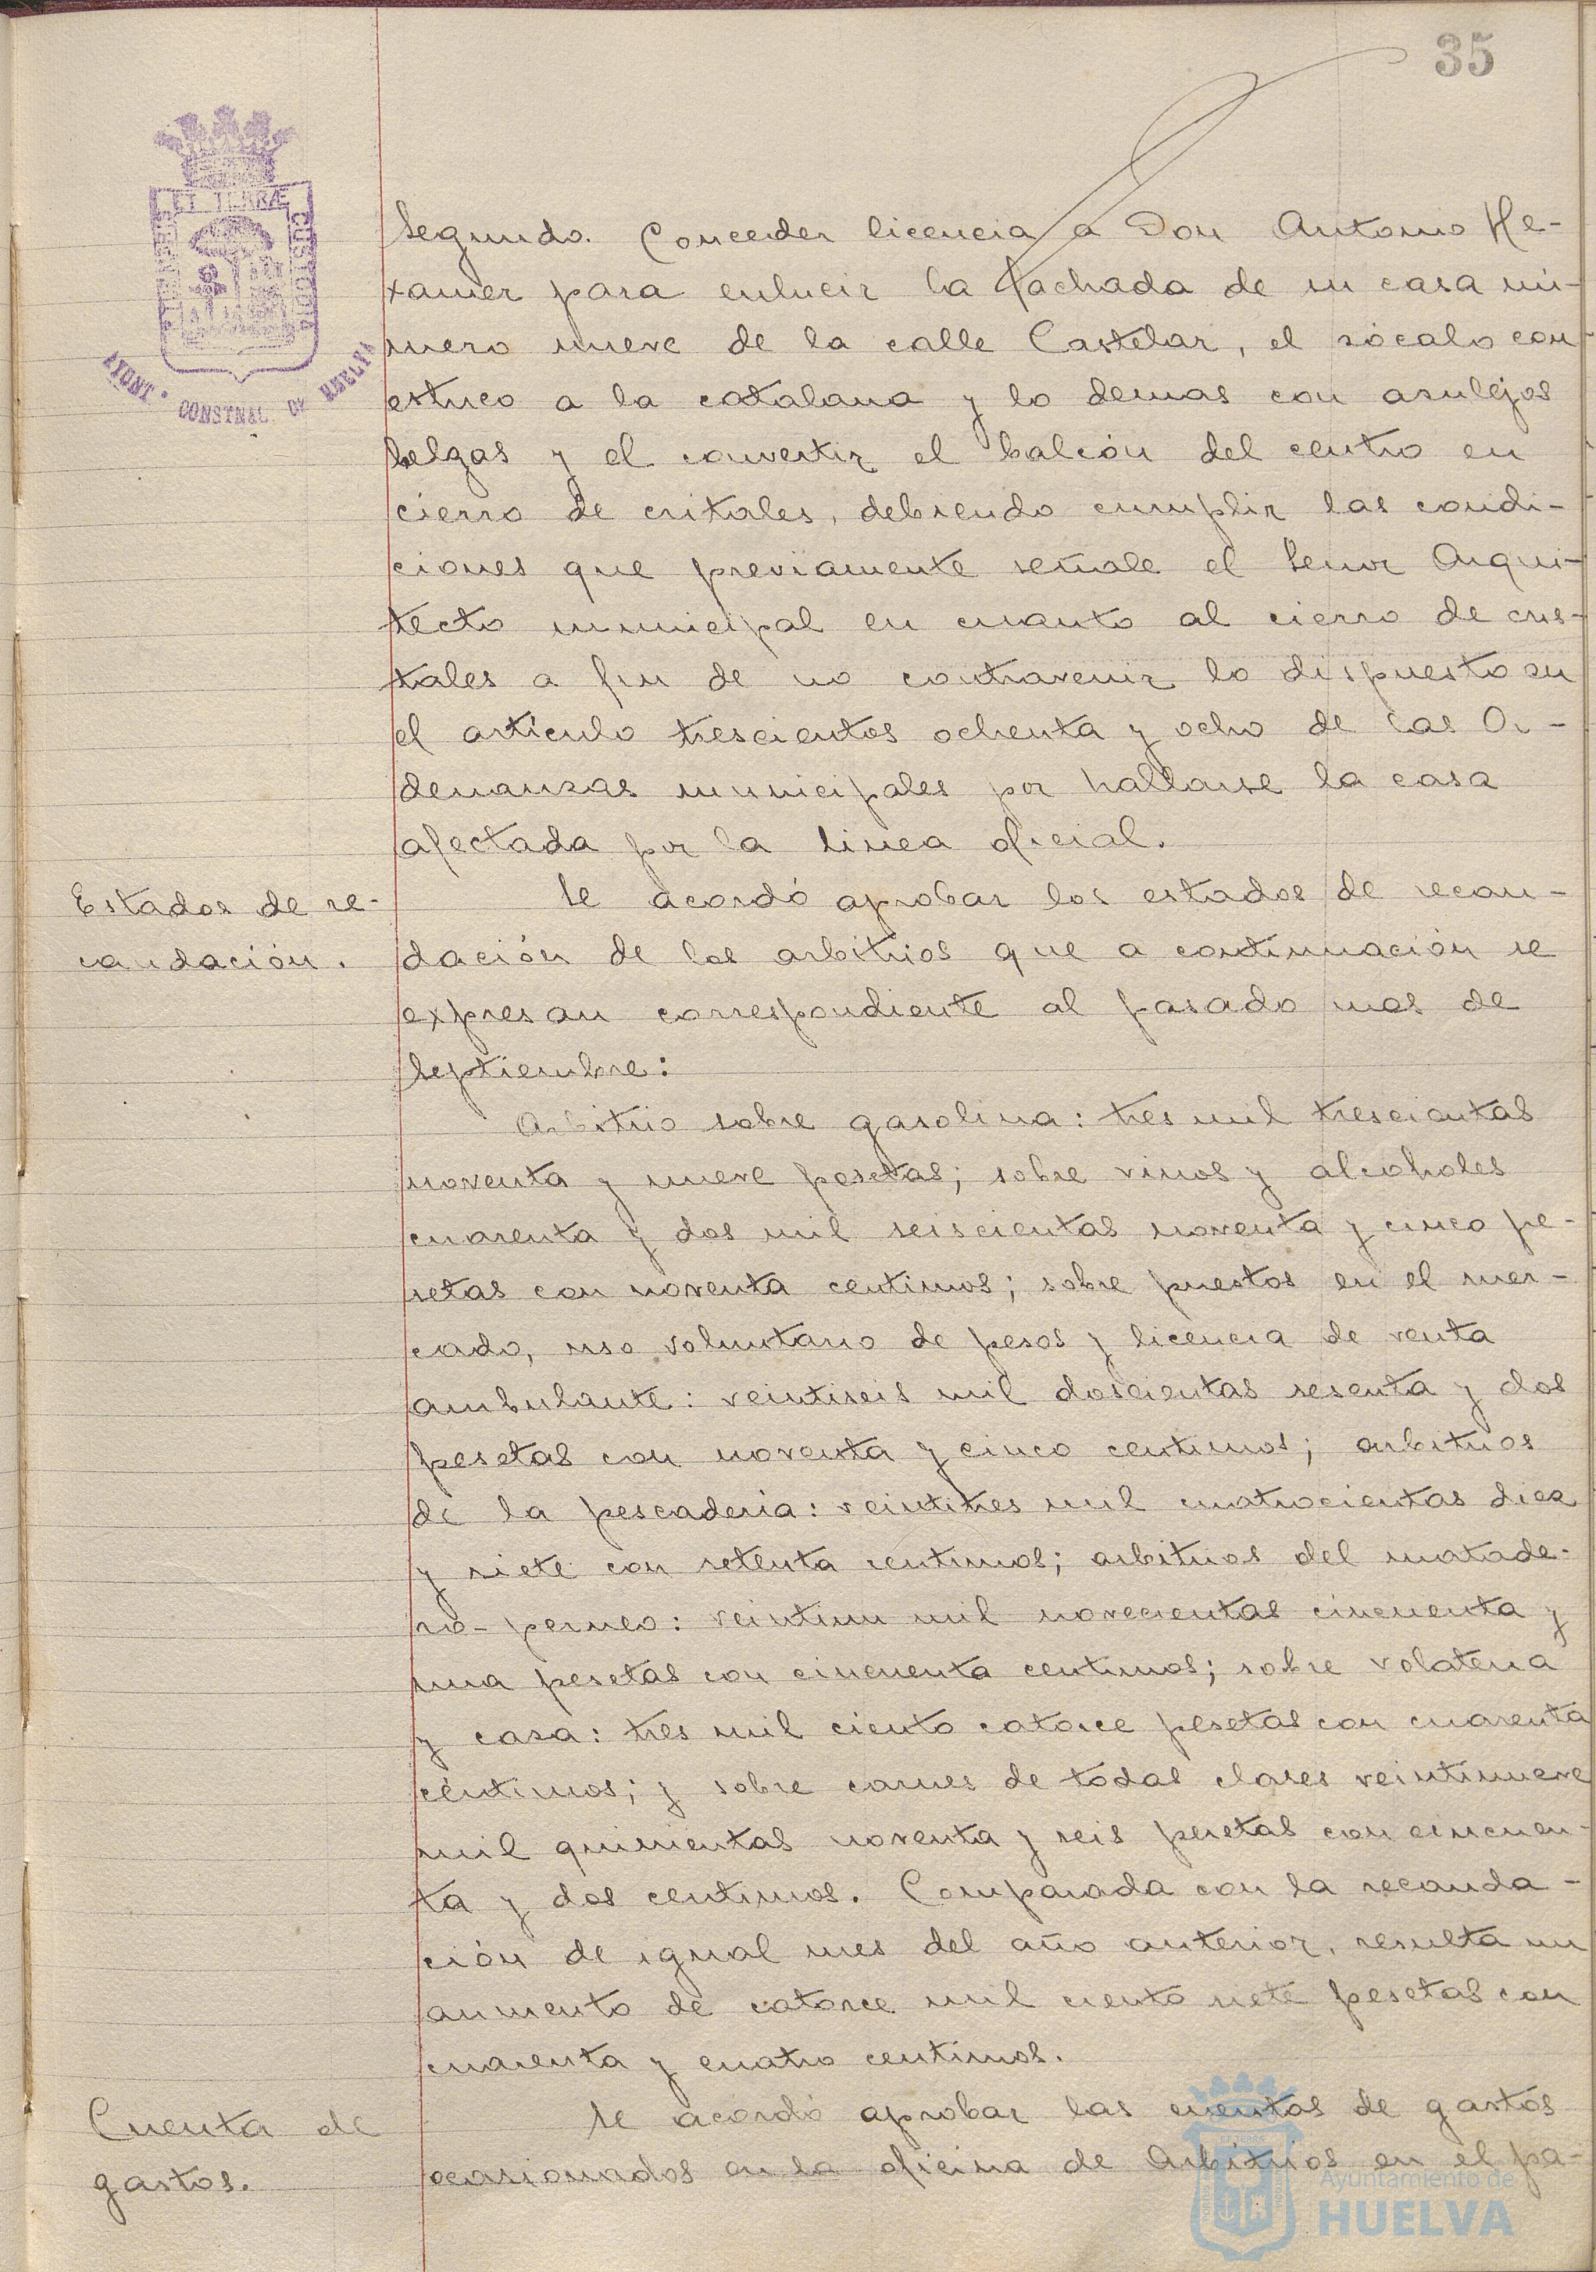 35
ET TERRÆ
PORTUS MARIS
CUSTODIA
AYUNT. CONSTNAL DE HUELVA
Segundo. Conceder licencia a Don Antonio He-
xamer para enlucir la fachada de su casa nú-
mero nueve de la calle Castelar, el zócalo con
estuco a la catalana y lo demas con asulejos
belgas y el convertir el balcón del centro en
cierro de critales, debiendo cumplir las condi-
ciones que previamente señale el Senor Arqui-
tecto municipal en cuanto al cierro de cris-
tales a fin de no contravenir lo dispuesto en
el artículo trescientos ochenta y ocho de las Or-
denanzas municipales por hallarse la casa
afectada por la linea oficial.
Estados de re-
caudación.
Se acordó aprobar los estados de recau-
dación de los arbitrios que a continuación se
expresan correspondiente al pasado mes de
Septiembre:
Arbitrio sobre gasolina: tres mil trescientas
noventa y nueve pesetas; sobre vinos y alcoholes
cuarenta y dos mil seiscientas noventa y cinco pe-
setas con noventa centimos; sobre puestos en el mer-
cado, uso voluntario de pesos y licencia de venta
ambulante: veintiseis mil doscientas sesenta y dos
pesetas con noventa y cinco centimos; arbitrios
de la pescadería: veintitres mil cuatrocientas diez
y siete con setenta centimos; arbitrios del matade-
ro-perneo: veintiun mil novecientas cincuenta y
una pesetas con cincuenta centimos; sobre volateria
y caza: tres mil ciento catorce pesetas con cuarenta
céntimos; y sobre carnes de todas clases veintinueve
mil quinientas noventa y seis pesetas con cincuen-
ta y dos centimos. Comparada con la recauda-
ción de igual mes del año anterior, resulta un
aumento de catorce mil ciento siete pesetas con
cuarenta y cuatro centimos.
Cuenta de
gastos.
Se acordó aprobar las cuentas de gastos
ocasionados en la oficina de Arbitrios en el pa-
Ayuntamiento de
HUELVA